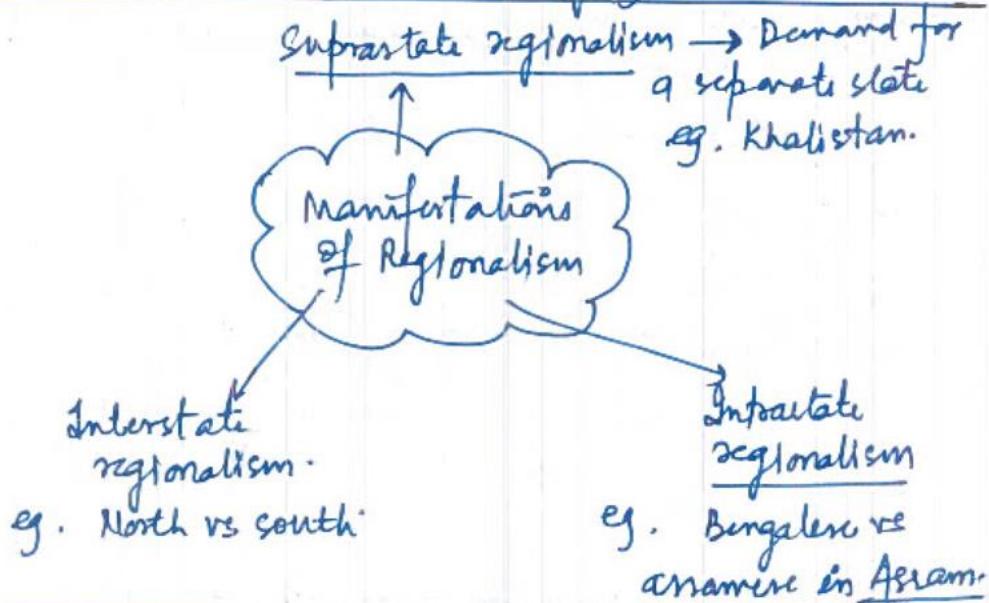 Suprastate regionalism → Demand for
a separate state
eg. Khalistan.
Manifestations
of Regionalism
Interstate
regionalism.
eg. North vs south
Intrastate
regionalism
eg. Bengalese vs
assamese in Assam.